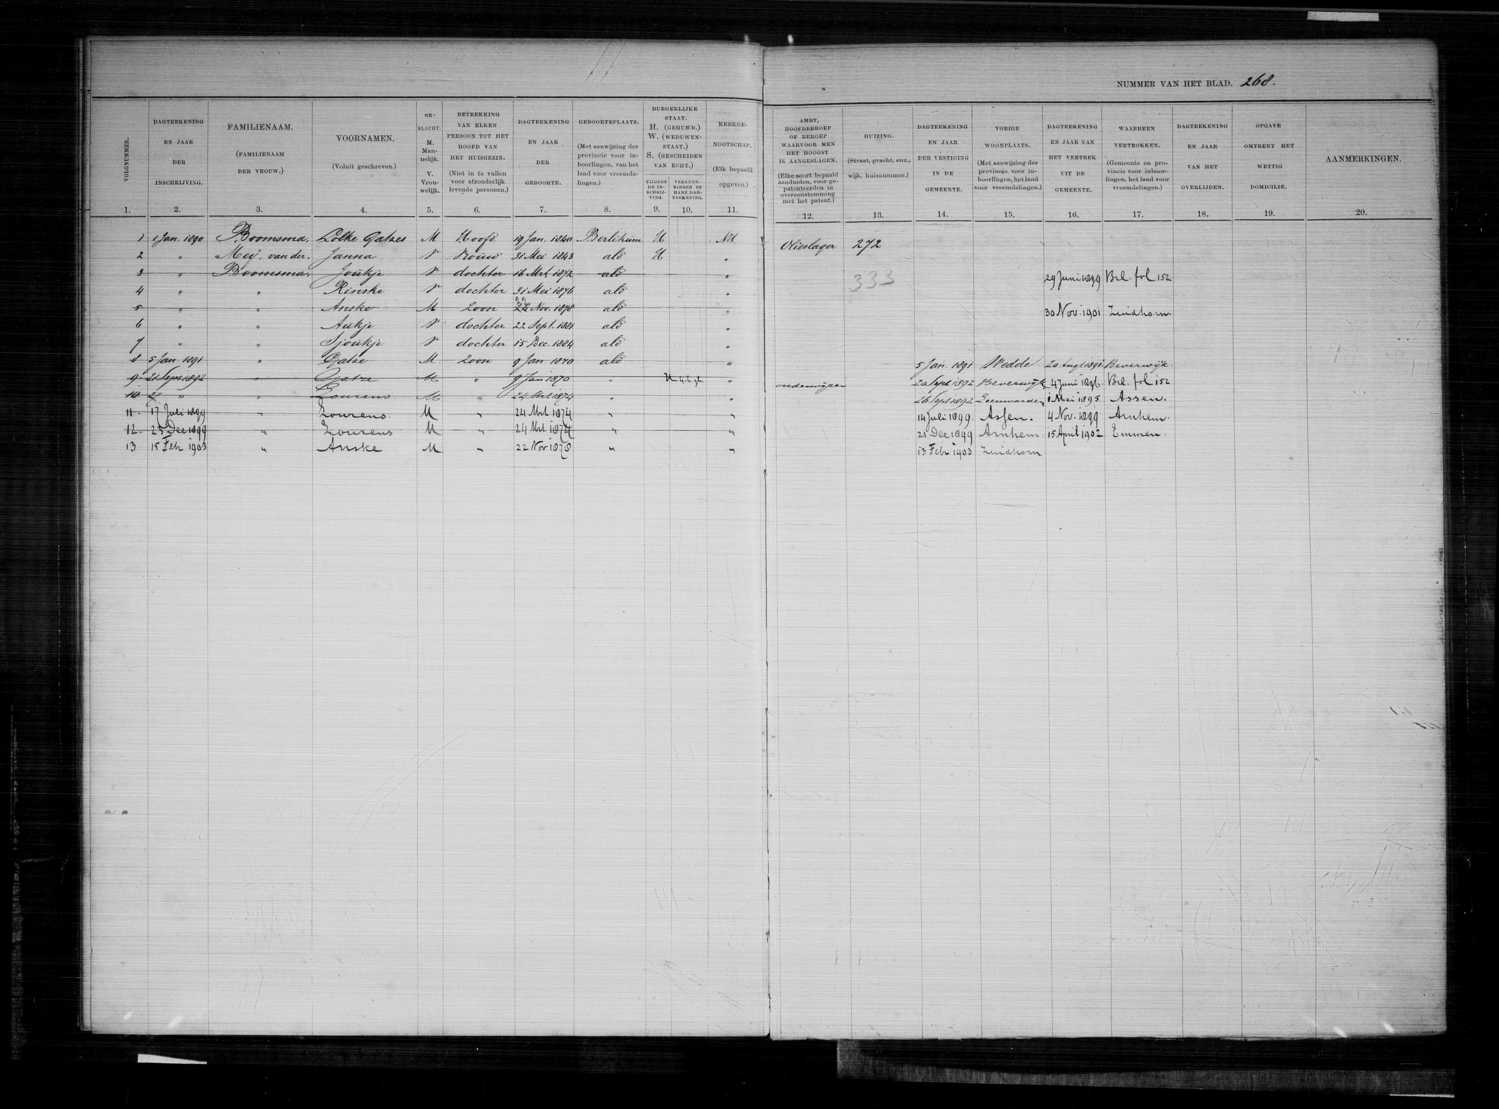 NUMMER VAN HET BLAD. 268.
VOLGNUMMER.
DAGTEEKENING EN JAAR DER INSCHRIJVING.
FAMILIENAAM. (FAMILIENAAM DER VROUW.)
VOORNAMEN. (Voluit geschreven.)
GESLACHT. M. Mannelijk. V. Vrouwelijk.
BETREKKING VAN ELKEN PERSOON TOT HET HOOFD VAN HET HUISGEZIN. (Niet in te vullen voor afzonderlijk levende personen.)
DAGTEEKENING EN JAAR DER GEBOORTE.
GEBOORTEPLAATS. (Met aanwijzing der provincie voor inboorlingen, van het land voor vreemdelingen.)
BURGERLIJKE STAAT. H. (GEHUWD.) W. (WEDUWENSTAAT.) S. (GESCHEIDEN VAN ECHT.)
KERKGENOOTSCHAP. (Elk bepaald opgeven.)
AMBT, HOOFDBEROEP OF BEROEP WAARVOOR MEN HET HOOGST IS AANGESLAGEN.
HUIZING. (Straat, gracht, enz., wijk, huisnummer.)
DAGTEEKENING EN JAAR DER VESTIGING IN DE GEMEENTE.
VORIGE WOONPLAATS. (Met aanwijzing der provincie voor inboorlingen, het land voor vreemdelingen.)
DAGTEEKENING EN JAAR VAN HET VERTREK UIT DE GEMEENTE.
WAARHEEN VERTROKKEN. (Gemeente en provincie voor inboorlingen, het land voor vreemdelingen.)
DAGTEEKENING EN JAAR VAN HET OVERLIJDEN.
OPGAVE OMTRENT HET WETTIG DOMICILIE.
AANMERKINGEN.
1. 2. 3. 4. 5. 6. 7. 8. 9. 10. 11. 12. 13. 14. 15. 16. 17. 18. 19. 20.
1 1 Jan. 1890 Boomsma, Lolke Gatzes M Hoofd 19 Jan. 1840 Berlikum H NH Olieslager 272
2 " Meij. van der. Janna V Vrouw 31 Mei 1843 als H "
3 " Boomsma Joukje V dochter 16 Mrt 1872 als " 333 29 Juni 1899 Bel. fol 152
4 " " Rinske V dochter 31 Mei 1876 als "
5 " " Anske M Zoon 22 Nov. 1878 als " 30 Nov. 1901 Zuidhorn
6 " " Aukje V dochter 22 Sept. 1881 als "
7 " " Sjoukje V dochter 15 Dec. 1884 als "
8 5 Jan. 1891 " Gatze M Zoon 9 Jan 1870 als " 5 Jan. 1891 Wedde 1891 Beverwijk
9 21 Sept 1892 " Gatze M " 9 Jan 1870 " H " onderwijzer 20 Sept 1892 Beverwijk 4 Juni 1896 Bel. fol 152
10 " " Lourens M " 24 Mrt 1874 " " 26 Sept 1892 Leeuwarden 1 Mei 1895 Assen.
11 17 Juli 1899 " Lourens M " 24 Mrt 1874 " " 14 Juli 1899 Assen. 4 Nov. 1899 Arnhem.
12 23 Dec 1899 " Lourens M " 24 Mrt 1874 " " 21 Dec 1899 Arnhem 15 April 1902 Emmen.
13 15 Feb 1903 " Anske M " 22 Nov 1878 " " 13 Febr 1903 Zuidhorn